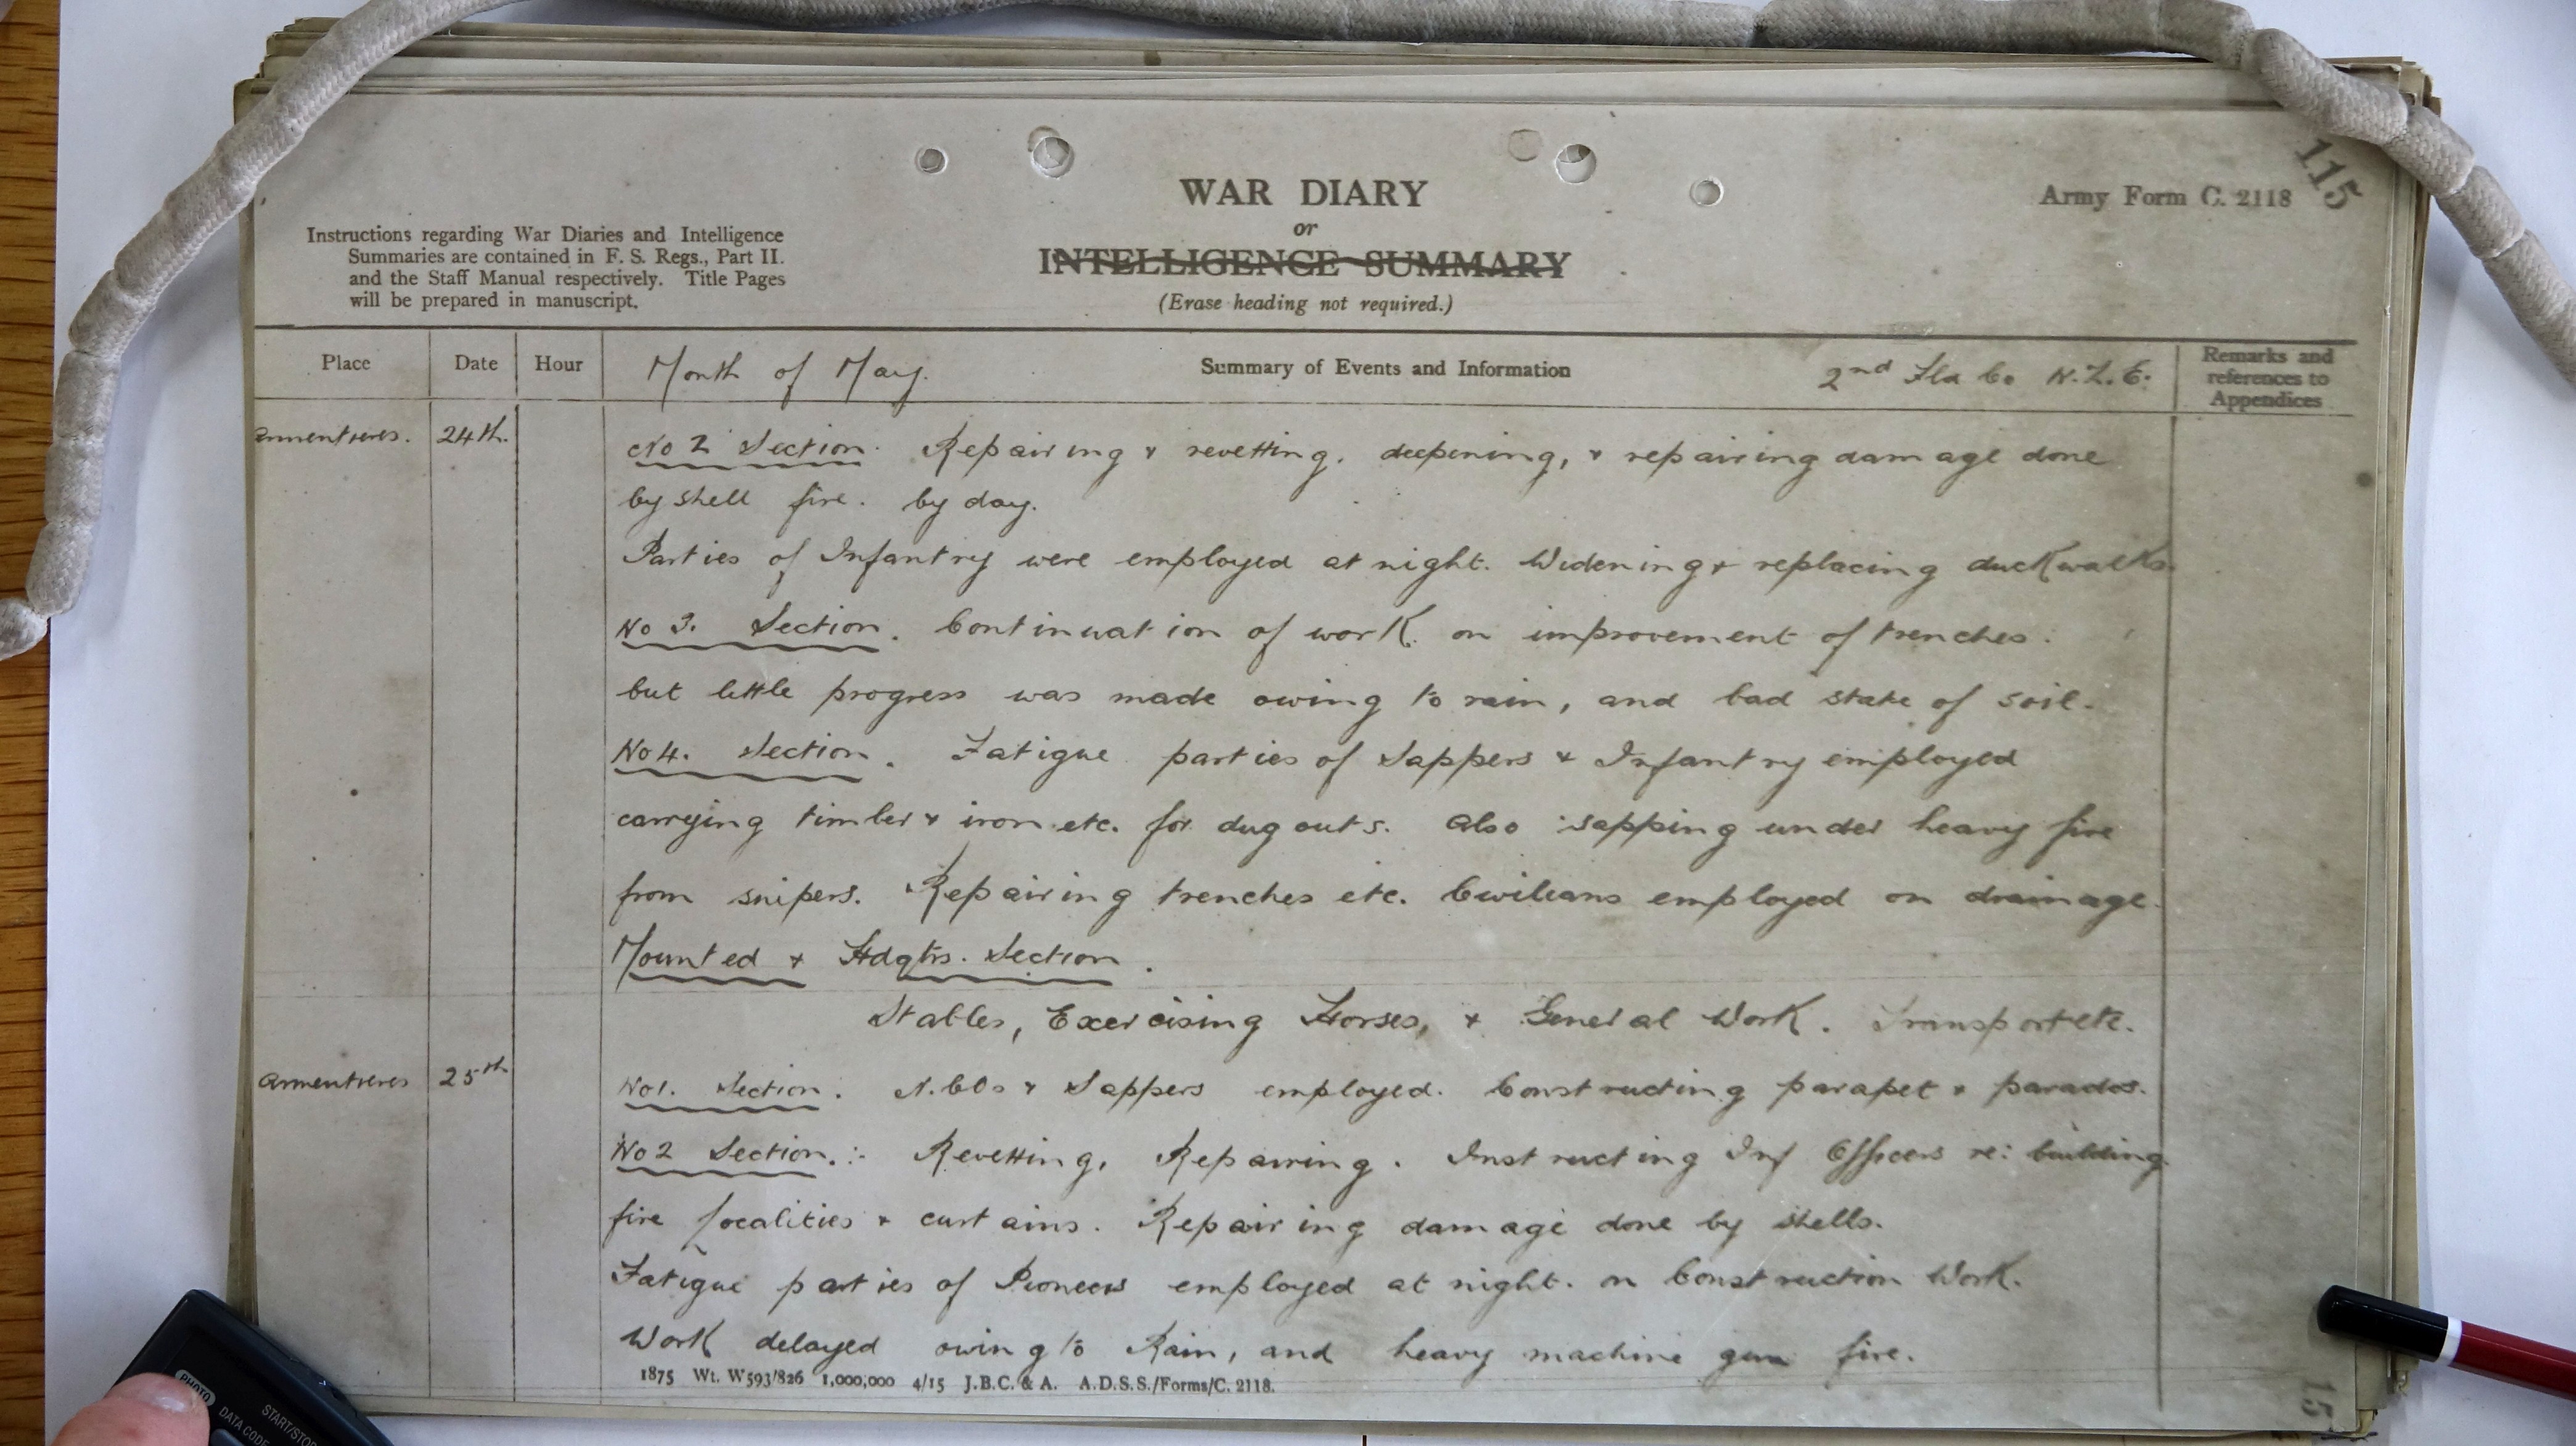 115
WAR DIARY
Army Form C. 2118
or
Instructions regarding War Diaries and Intelligence
Summaries are contained in F. S. Regs., Part II.
and the Staff Manual respectively. Title Pages
will be prepared in manuscript.
INTELLIGENCE SUMMARY
(Erase heading not required.)
Place Date Hour Month of May. Summary of Events and Information 2nd Fld Co N.Z.E. Remarks and
references to
Appendices
Armentieres. 24th. No 2 Section. Repairing & revetting, deepening, & repairing damage done
by shell fire. by day.
Parties of Infantry were employed at night. Widening & replacing duckwalks.
No 3. Section. Continuation of work on improvement of trenches.
but little progress was made owing to rain, and bad state of soil.
No 4. Section. Fatigue parties of Sappers & Infantry employed
carrying timber & iron etc. for dug outs. Also sapping under heavy fire
from snipers. Repairing trenches etc. Civilians employed on drainage.
Mounted & Hdqtrs. Section.
Stables, Exercising Horses, & General Work. Transport etc.
Armentieres 25th No 1. Section. N.COs & Sappers employed. Constructing parapet & parados.
No 2 Section.:- Revetting, Repairing. Instructing Inf Officers re: building
fire localities & curtains. Repairing damage done by shells.
Fatigue parties of Pioneers employed at night. on Construction Work.
Work delayed owing to Rain, and heavy machine gun fire.
1875 Wt. W593/826 1,000,000 4/15 J.B.C. & A. A.D.S.S./Forms/C. 2118.
15
PHOTO
DATA CODE
START/STOP